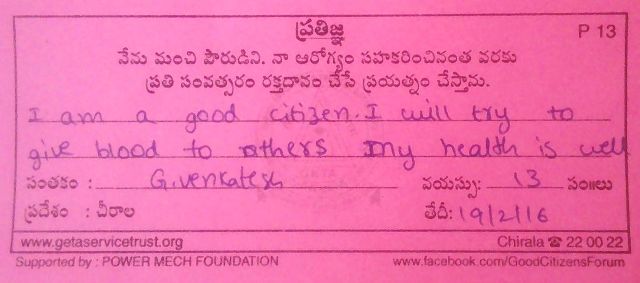 ప్రతిజ్ఞ P 13
నేను మంచి పౌరుడిని. నా ఆరోగ్యం సహకరించినంత వరకు
ప్రతి సంవత్సరం రక్తదానం చేసే ప్రయత్నం చేస్తాను.
I am a good citizen. I will try to
give blood to others my health is well
సంతకం : G. Venkatesh వయస్సు: 13 సం॥లు
ప్రదేశం : చీరాల తేదీ: 19/2/16
www.getaservicetrust.org Chirala ☎ 22 00 22
Supported by : POWER MECH FOUNDATION www.facebook.com/GoodCitizensForum